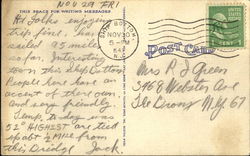 NOV 29 FRI
THIS SPACE FOR WRITING MESSAGES
Hi Folks enjoying
trip fine, has
sailed 95 miles
so far. Interesting
town this Ship Bottom
People here have an
accent of there own
and very friendly.
Temp. today was
52° HIGHEST are tied
up abt ½ MILE from
this Bridge Jack
BOTTOM
NOV 30
5 PM
N.
POST CARD
1 CENT 1
Mrs R J Green
3168 Webster Ave
The Bronx N.Y. 67